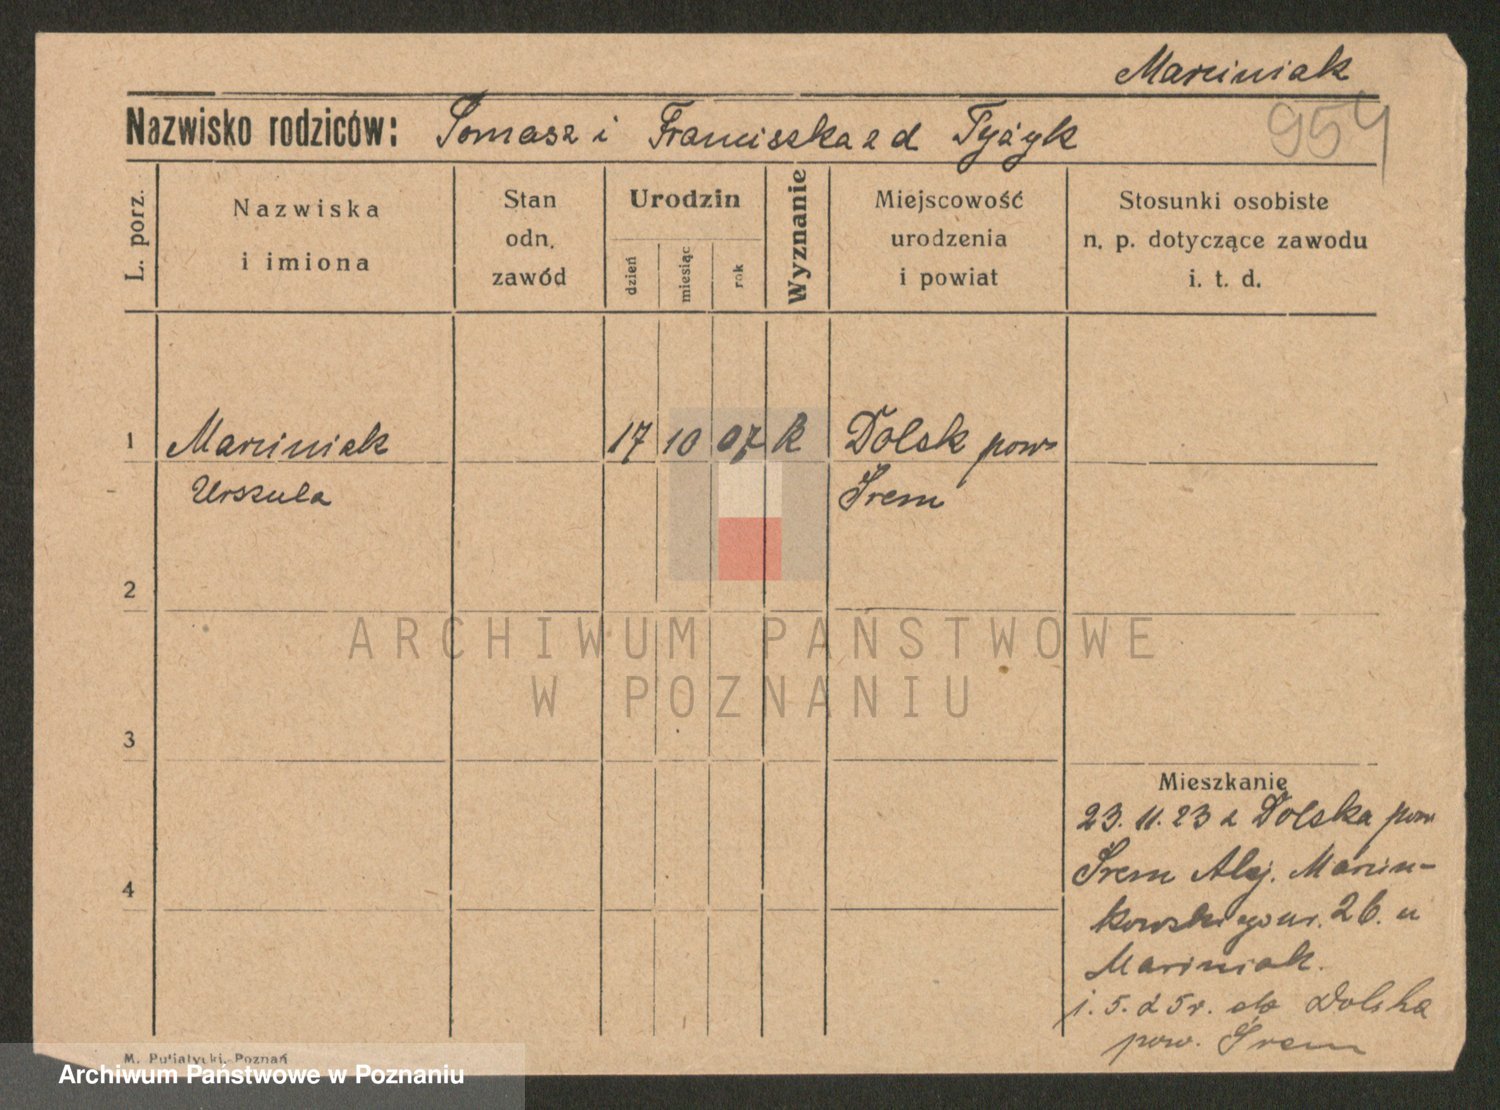 Marciniak
954
Nazwisko rodziców: Tomasz i Franciszka z d Tyżyk
L. porz.
Nazwiska
i imiona
Stan
odn.
zawód
Urodzin
dzień
miesiąc
rok
Wyznanie
Miejscowość
urodzenia
i powiat
Stosunki osobiste
n. p. dotyczące zawodu
i. t. d.
1 Marciniak 17 10 07 k Dolsk pow
Urszula Śrem
2
3
4
Mieszkanie
23. 11. 23 z Dolska pow
Śrem Alej. Marcin-
kowskiego nr. 26. u
Marciniak.
5. do Dolska
pow. Śrem
M. Putiatycki, Poznań
ARCHIWUM PAŃSTWOWE
W POZNANIU
Archiwum Państwowe w Poznaniu